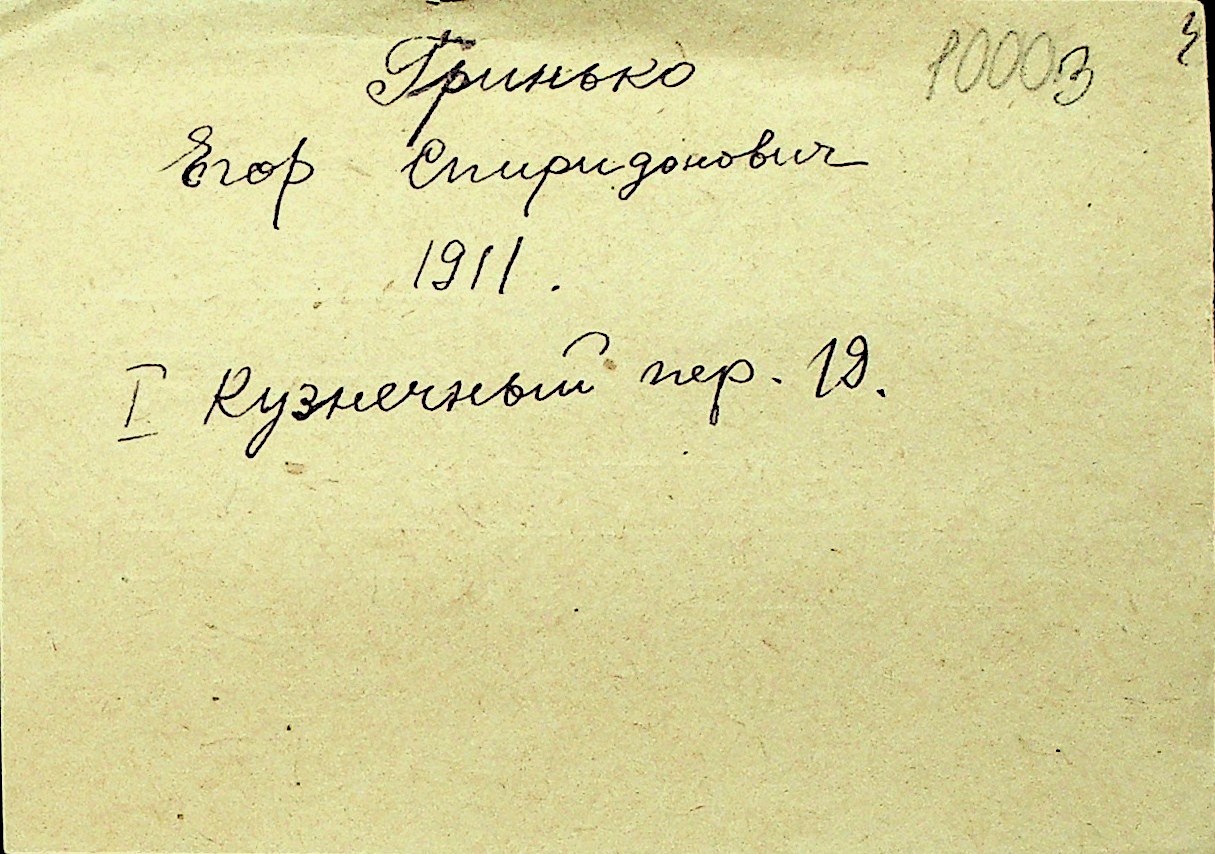 10003
Гринько
Егор Спиридонович
1911.
I Кузнечный пер. 19.